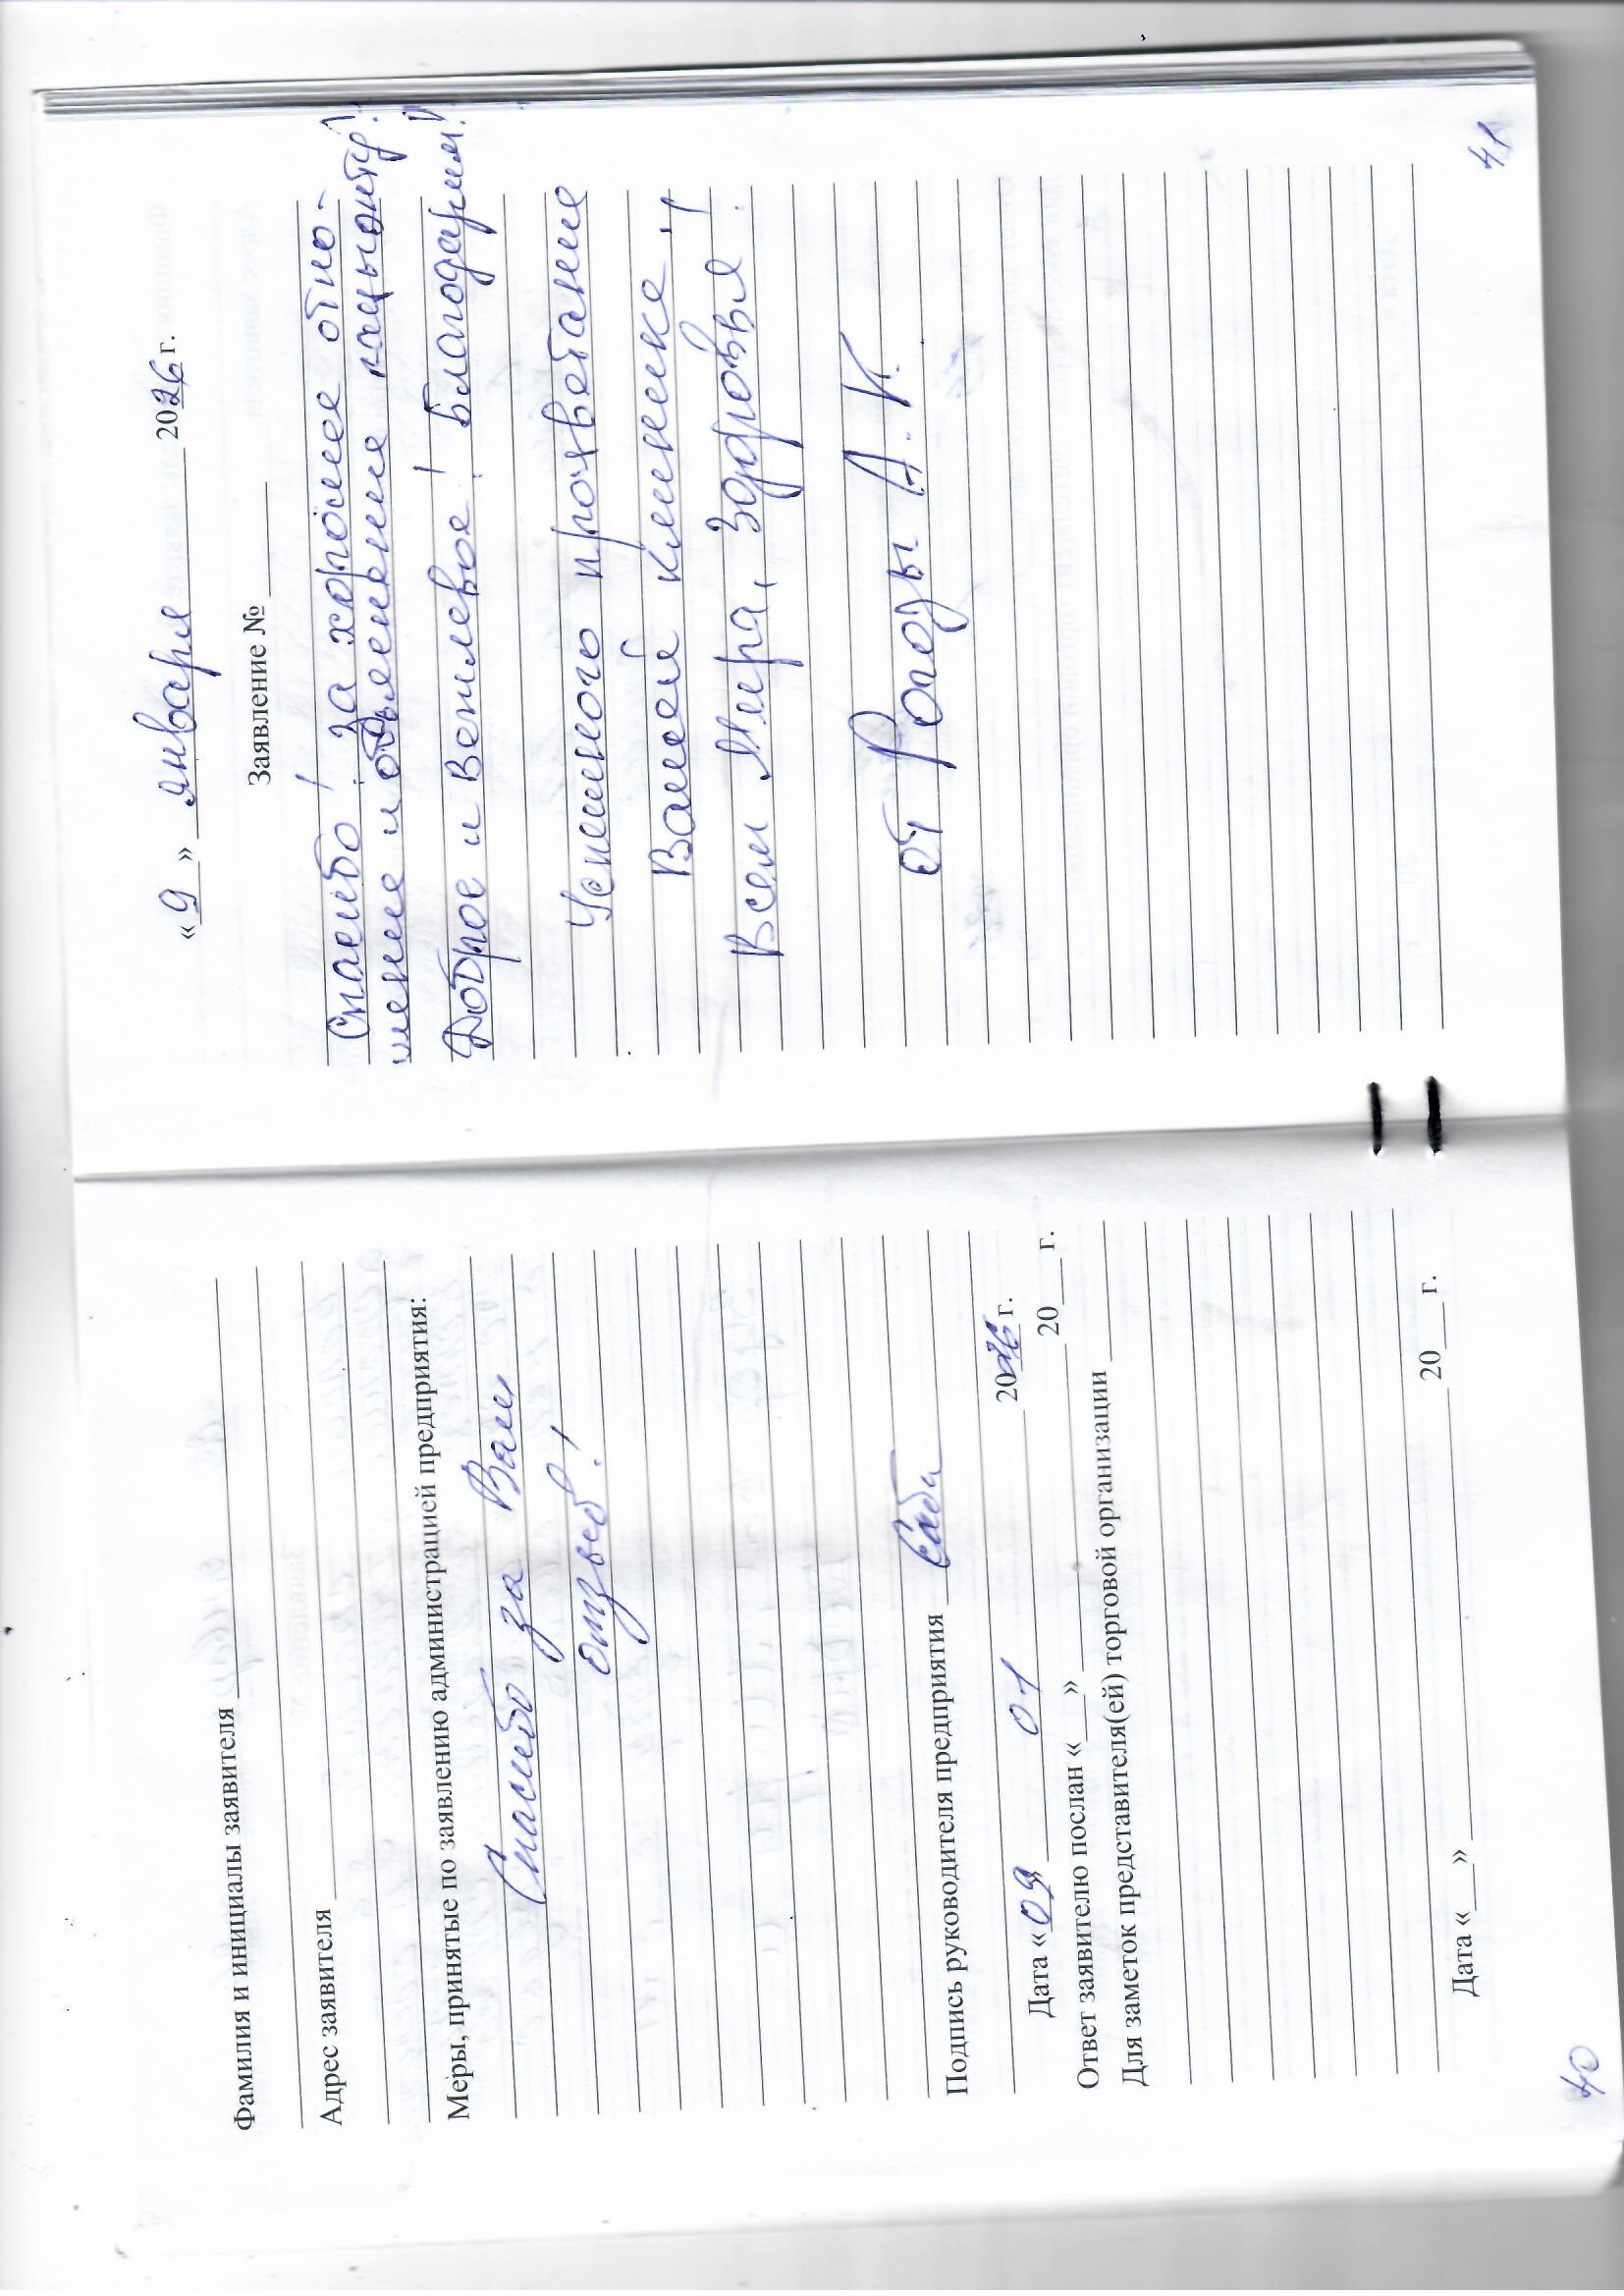 Фамилия и инициалы заявителя
Адрес заявителя
Меры, принятые по заявлению администрацией предприятия:
Спасибо за Ваш
отзыв!
Подпись руководителя предприятия
Дата «09» 01 2026 г.
Ответ заявителю послан «__» 20__ г.
Для заметок представителя(ей) торговой организации
Дата «__» 20__ г.
40
«9» января 2026 г.
Заявление №
Спасибо! За хорошее отно-
шение и объяснение пацыэнту!
Доброе и Вежлевое! Благодарим!
Успешного прочветание
Вашей клинике!
Всем Мира, Здоровья!
от Рогозы А.К.
41